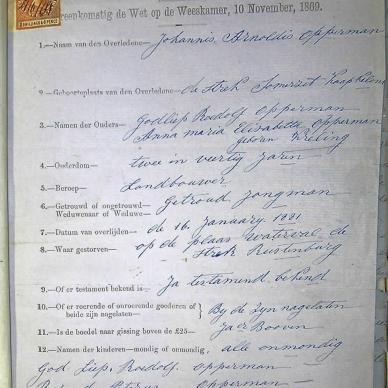 Overeenkomstig de Wet op de Weeskamer, 10 November, 1869.
1.—Naam van den Overledene— Johannis Arnoldus Opperman
2.—Geboorteplaats van den Overledene— de Strek Somerzet
3.—Namen der Ouders— Godliep Roedolf Opperman
Anna Maria Elisabetta Opperman
geboren
4.—Ouderdom— twee in vertig Jaren
5.—Beroep— Landbouwer
6.—Getrouwd of ongetrouwd— Getroud Jongman
Weduwenaar of Weduwe—
7.—Datum van overlijden— de 16 January 1881
8.—Waar gestorven— op de plaas Waterval de
Strek Rustenburg
9.—Of er testament bekend is— Ja testamend bekend
10.—Of er roerende of onroerende goederen of beide zijn nagelaten— By de Zyn nagelaten
11.—Is de boedel naar gissing boven de £25— Ja er Booven
12.—Namen der kinderen—mondig of onmondig, alle onmondig
God Liep Roedolf Opperman
Opperman